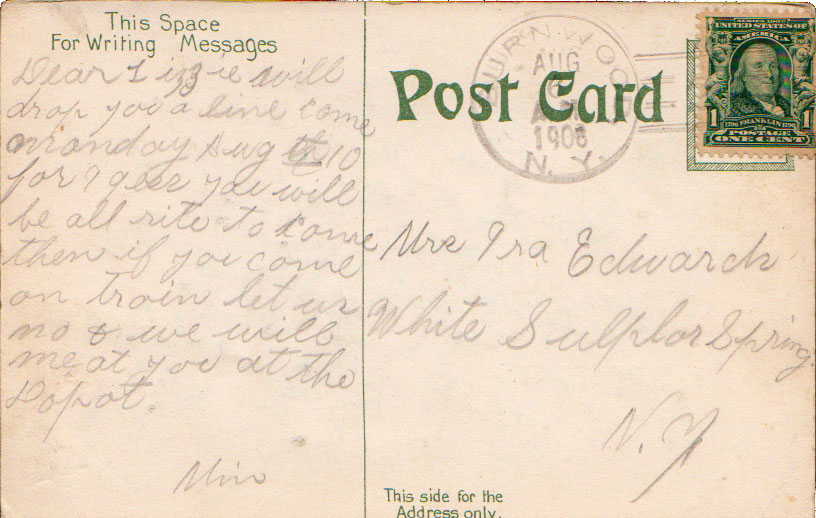 This Space
For Writing Messages
Dear Lizzie will
drop you a line come
monday Aug 10
for I gess you will
be all rite to come
then if you come
on train let us
no & we will
meat you at the
Dopot.
Min
Post Card
AUG
6
1908
N. Y.
SERIES 1902
UNITED STATES OF
AMERICA
1 1
1706 FRANKLIN 1790
POSTAGE
ONE CENT
Mrs Ira Edwards
White Sulphor Spring.
N. Y
This side for the
Address only.